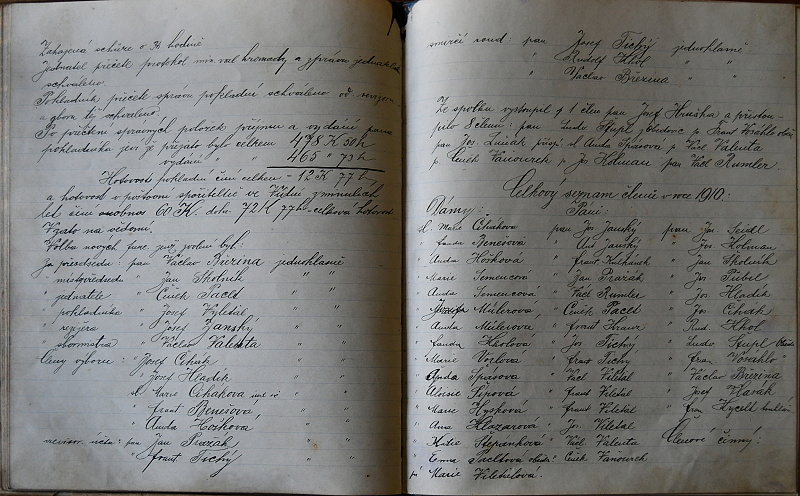 Zahájená schůze o ½8 hodině
Jednatel přečetl protokol min. val. hromady a zprávu jednatele
schváleno.
Pokladník přečetl zprávu pokladní schváleno od revizorů
schváleno.
Po přečtení správných položek příjmu a vydání pana
pokladníka jeví se přijato bylo celkem 478 K 50 h
vydání " " 465 " 73 h
Hotovost pokladní činí celkem - 12 K 77 h
a hotovost v poštovní spořitelně ve Vídni z minulých
let 60 K. doh. 72 K 77 h - celková hotovost
Vzato na vědomí.
Volba nových funk. zvoleni byli:
Za předsedu: pan Václav Březina jednohlasně
" místopředsedu " Jan Skolník " "
" jednatele " Čeněk Paclt " "
" pokladníka " Josef Viletal " "
" Josef Janský " "
" Václav Valenta " "
Členy výboru: " Josef Cihák " "
" Josef Hladík " "
sl. Marie Cihaková " "
" Benešová, " "
" Anda Hošková " "
revisoři účtů: pan Jan Pražák " "
" Frant Tichý " "
smírčí soud: pan Josef Tichý jednohlasně
" Rudolf Khol " "
" Václav Březina " "
Ze spolku vystoupil 1 člen pan Josef Hruška a přistou-
pilo 8 členů: pan Ludv Stupl p. Frant Vosáhlo
pan Jos. sl. Anda Spásová p. Václ Valenta
p. Čeněk Vaňourek p. Jos Holman pan Václ Rumler.
Celkový seznam členů v roce 1910:
Dámy: Páni:
sl. Marie Cihaková pan Jos Janský pan Jos. Seidl
" Benešová " Ant Janský " Jos Holman
" Anda Hošková " Frant Kulhánek " Jan Skolník
" Marie Somencová " Jan Pražák " Jos. Pubil
" Anda Somencová " Václ Rumler " Jos Hladík
" Müllerová, " Čeněk Paclt " Jos Cihák
" Anda Müllerová " Frant " Rud. Khol
" Kholová " Jos Tichý " Ludv Stupl
" Marie Vorlová " Frant Tichý " Fran Vosáhlo "
" Anda Spásová " Václ Viletal " Václav Březina
" Aloisie " Frant Viletal " Josef Vlasák
" Marie Hyšková " Frant Viletal " Fran
" Ana Hlozarová " Jos. Viletal
" Štěpánková " Václ Valenta Členové činný:
" Emma Pacltová " Čeněk Vaňourek
" Marie Viletelová.